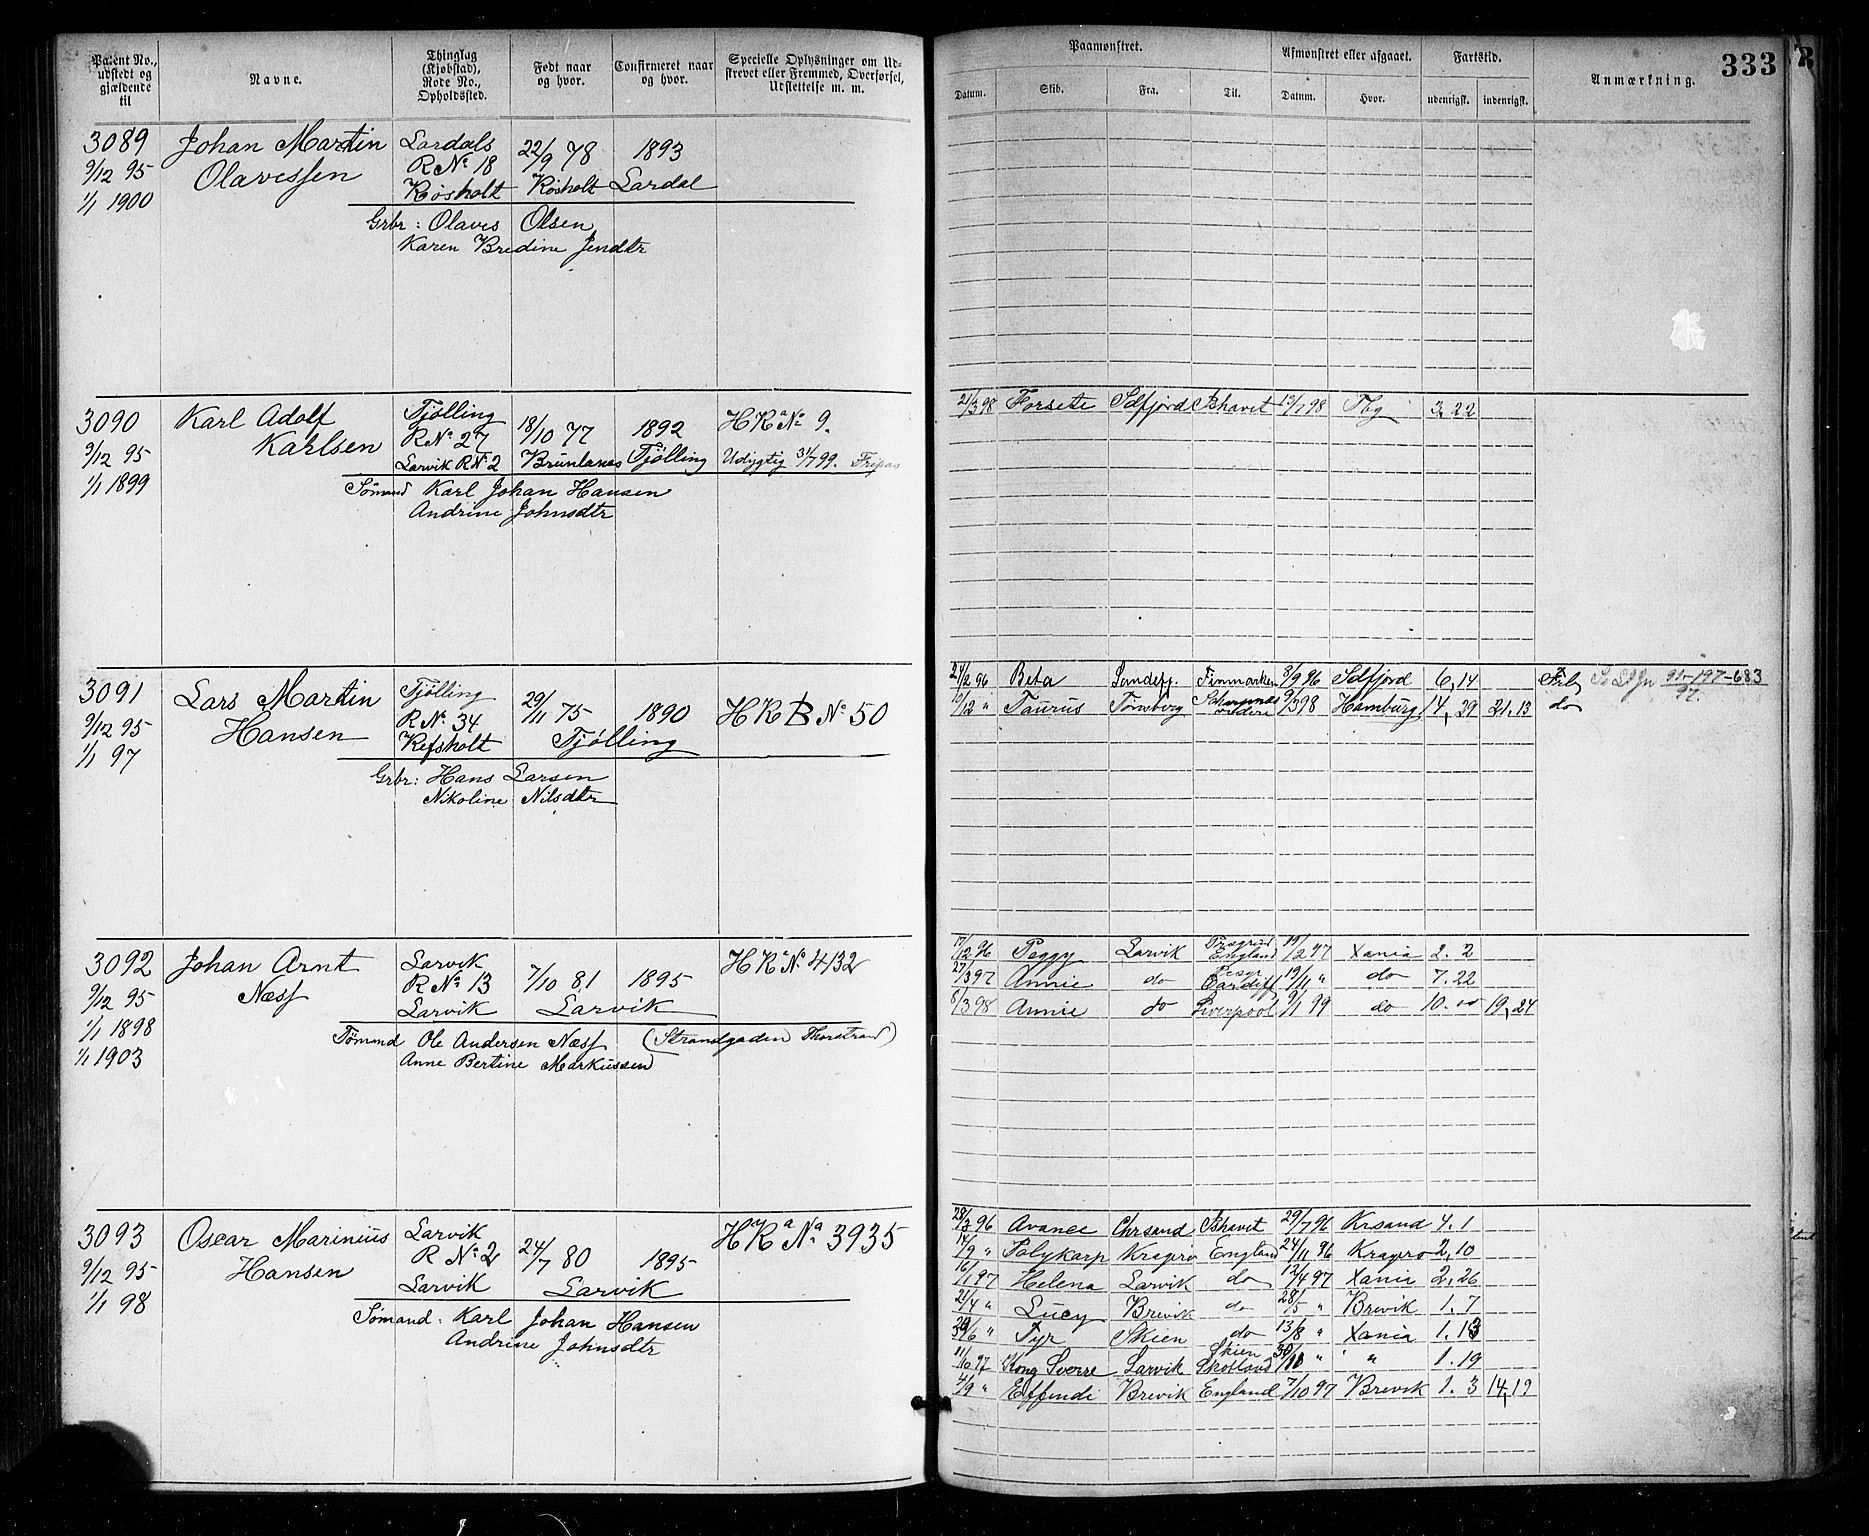 Patent No., udstedt og gjældende til
Navne.
Thinglag (Kjøbstad), Rode No., Opholdssted.
Født naar og hvor.
Confirmeret naar og hvor.
Specielle Oplysninger om Udstrevet eller Fremmed, Overførsel, Udslettelse m. m.
Paamønstret.
Afmønstret eller afgaaet.
Fartstid.
Anmærkning.
333
Datum. Skib. Fra. Til. Datum. Hvor. udenrigsk. indenrigsk.
3089 Johan Martin Lardals 22/9 78 1893
9/12 95 Olavessen R No 18
1/1 1900 Røsholt Røsholt Lardal
Grbr: Olaves Olsen
Karen Bredine Jendtr
3090 Karl Adolf Tjølling 18/10 77 1892 HRa No 9.
9/12 95 Karlsen R No 27
Larvik R No 2 Brunlanes Tjølling Udygtig 31/7 99. Fripas
1/1 1899
Sømand Karl Johan Hansen
Andrine Johnsdtr
21/3 98 Forsete Sdfjord Ishavet 13/7 98 Tbg 3,22
3091 Lars Martin Tjølling 29/11 75 1890 HRB No 50
9/12 95 Hansen R No 34
1/1 97 Refsholt Tjølling
Grbr: Hans Larsen
Nikoline Nilsdtr
24/2 96 Beta Sandefj. Finmarken 3/9 96 Sdfjord 6,14
10/12 " Taurus Tønsberg 9/3 98 Hamburg 14,29 21.13 do
91-197-683
97.
3092 Johan Arnt Larvik 7/10 81 1895 HRa No 4132
9/12 95 Næss R No 13
1/1 1898 Larvik Larvik
1/1 1903
Tømmd Ole Andersen Næss (Strandgaden Thorstrand)
Anne Bertine Markussen
17/12 96 Peggy Larvik England 19/2 97 Xania 2. 2
27/3 97 Annie do Cardiff 19/11 " do 7.22
8/3 98 Annie do Liverpool 9/1 99 do 10. " 19,24
3093 Oscar Marinius Larvik 24/7 80 1895 HRa No 3935
9/12 95 Hansen R No 2
1/1 98 Larvik Larvik
Sømand: Karl Johan Hansen
Andrine Johnsdtr
28/3 96 Avance Chrsand Ishavet 29/7 96 Krsand 4.1
14/9 " Polykarp Kragerø England 24/11 96 Kragerø 2,10
16/1 97 Helena Larvik do 12/4 97 Xania 2,26
21/4 " Lucy Brevik do 28/5 " Brevik 1.7
30/6 " Tyr Skien do 13/8 " Xania 1.13
11/6 97 Kong Sverre Larvik Skien Skotland 30/10 " " 1.19
4/9 " Effendi Brevik England 7/10 97 Brevik 1.3 14,19